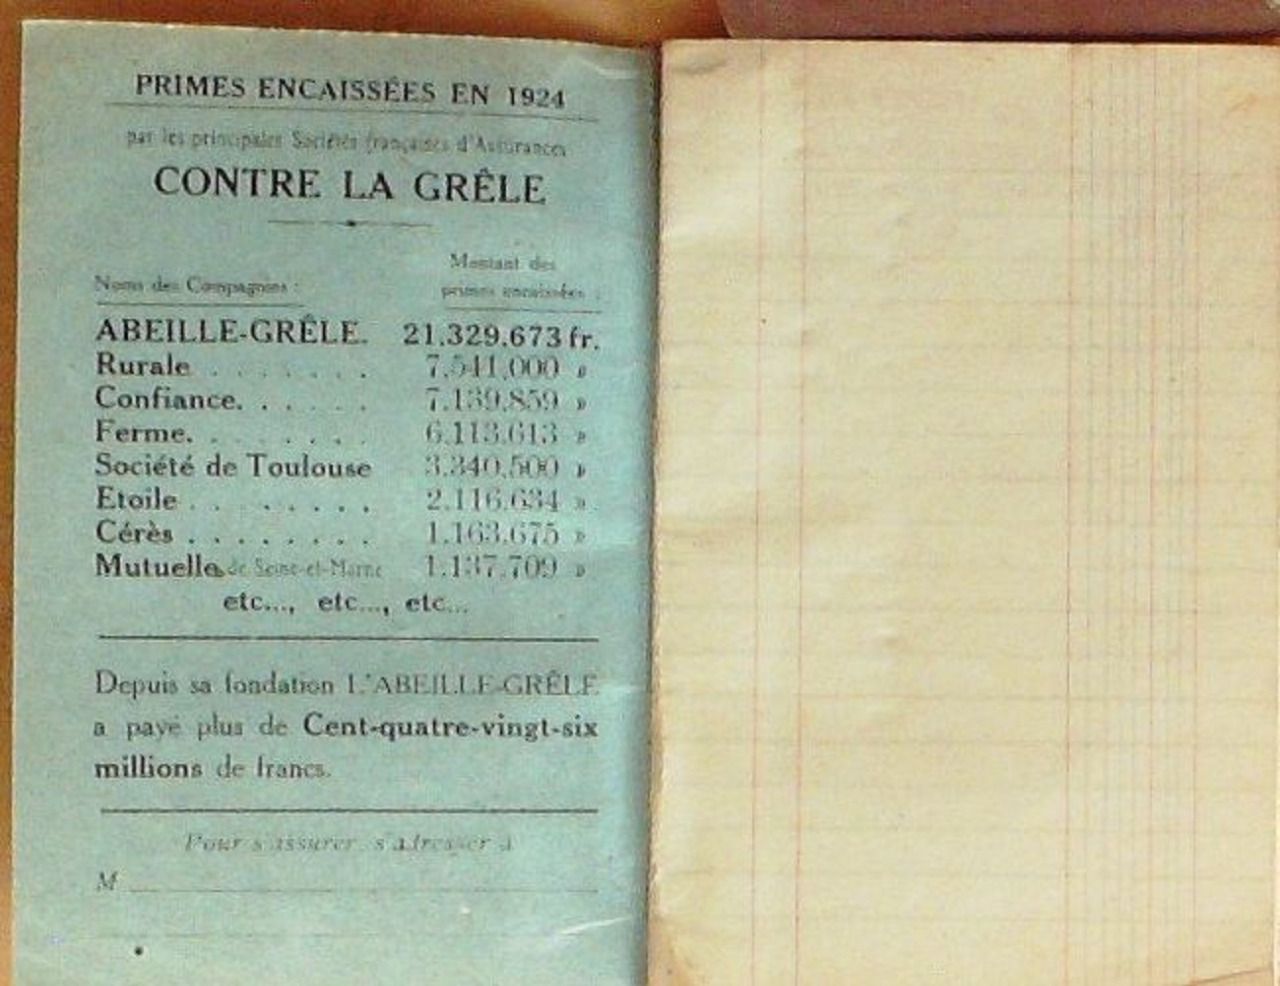 PRIMES ENCAISSÉES EN 1924
par les principales Sociétés françaises d'Assurances
CONTRE LA GRÊLE
Noms des Compagnies :
Montant des
primes encaissées :
ABEILLE-GRÊLE. 21.329.673 fr.
Rurale . . . . . . . 7.541.000 »
Confiance. . . . . . 7.139.859 »
Ferme. . . . . . . 6.113.613 »
Société de Toulouse 3.340.500 »
Etoile . . . . . . . 2.116.634 »
Cérès . . . . . . . . 1.163.675 »
Mutuelle de Seine-et-Marne 1.137.709 »
etc..., etc..., etc...
Depuis sa fondation L'ABEILLE-GRÊLE
a payé plus de Cent-quatre-vingt-six
millions de francs.
Pour s'assurer, s'adresser à
M